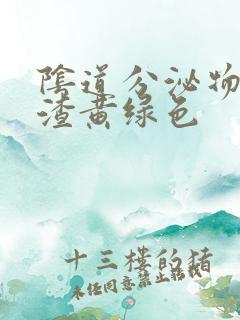 陰道分泌物
渣黄绿色
十三横的猪
未经同意禁止转载